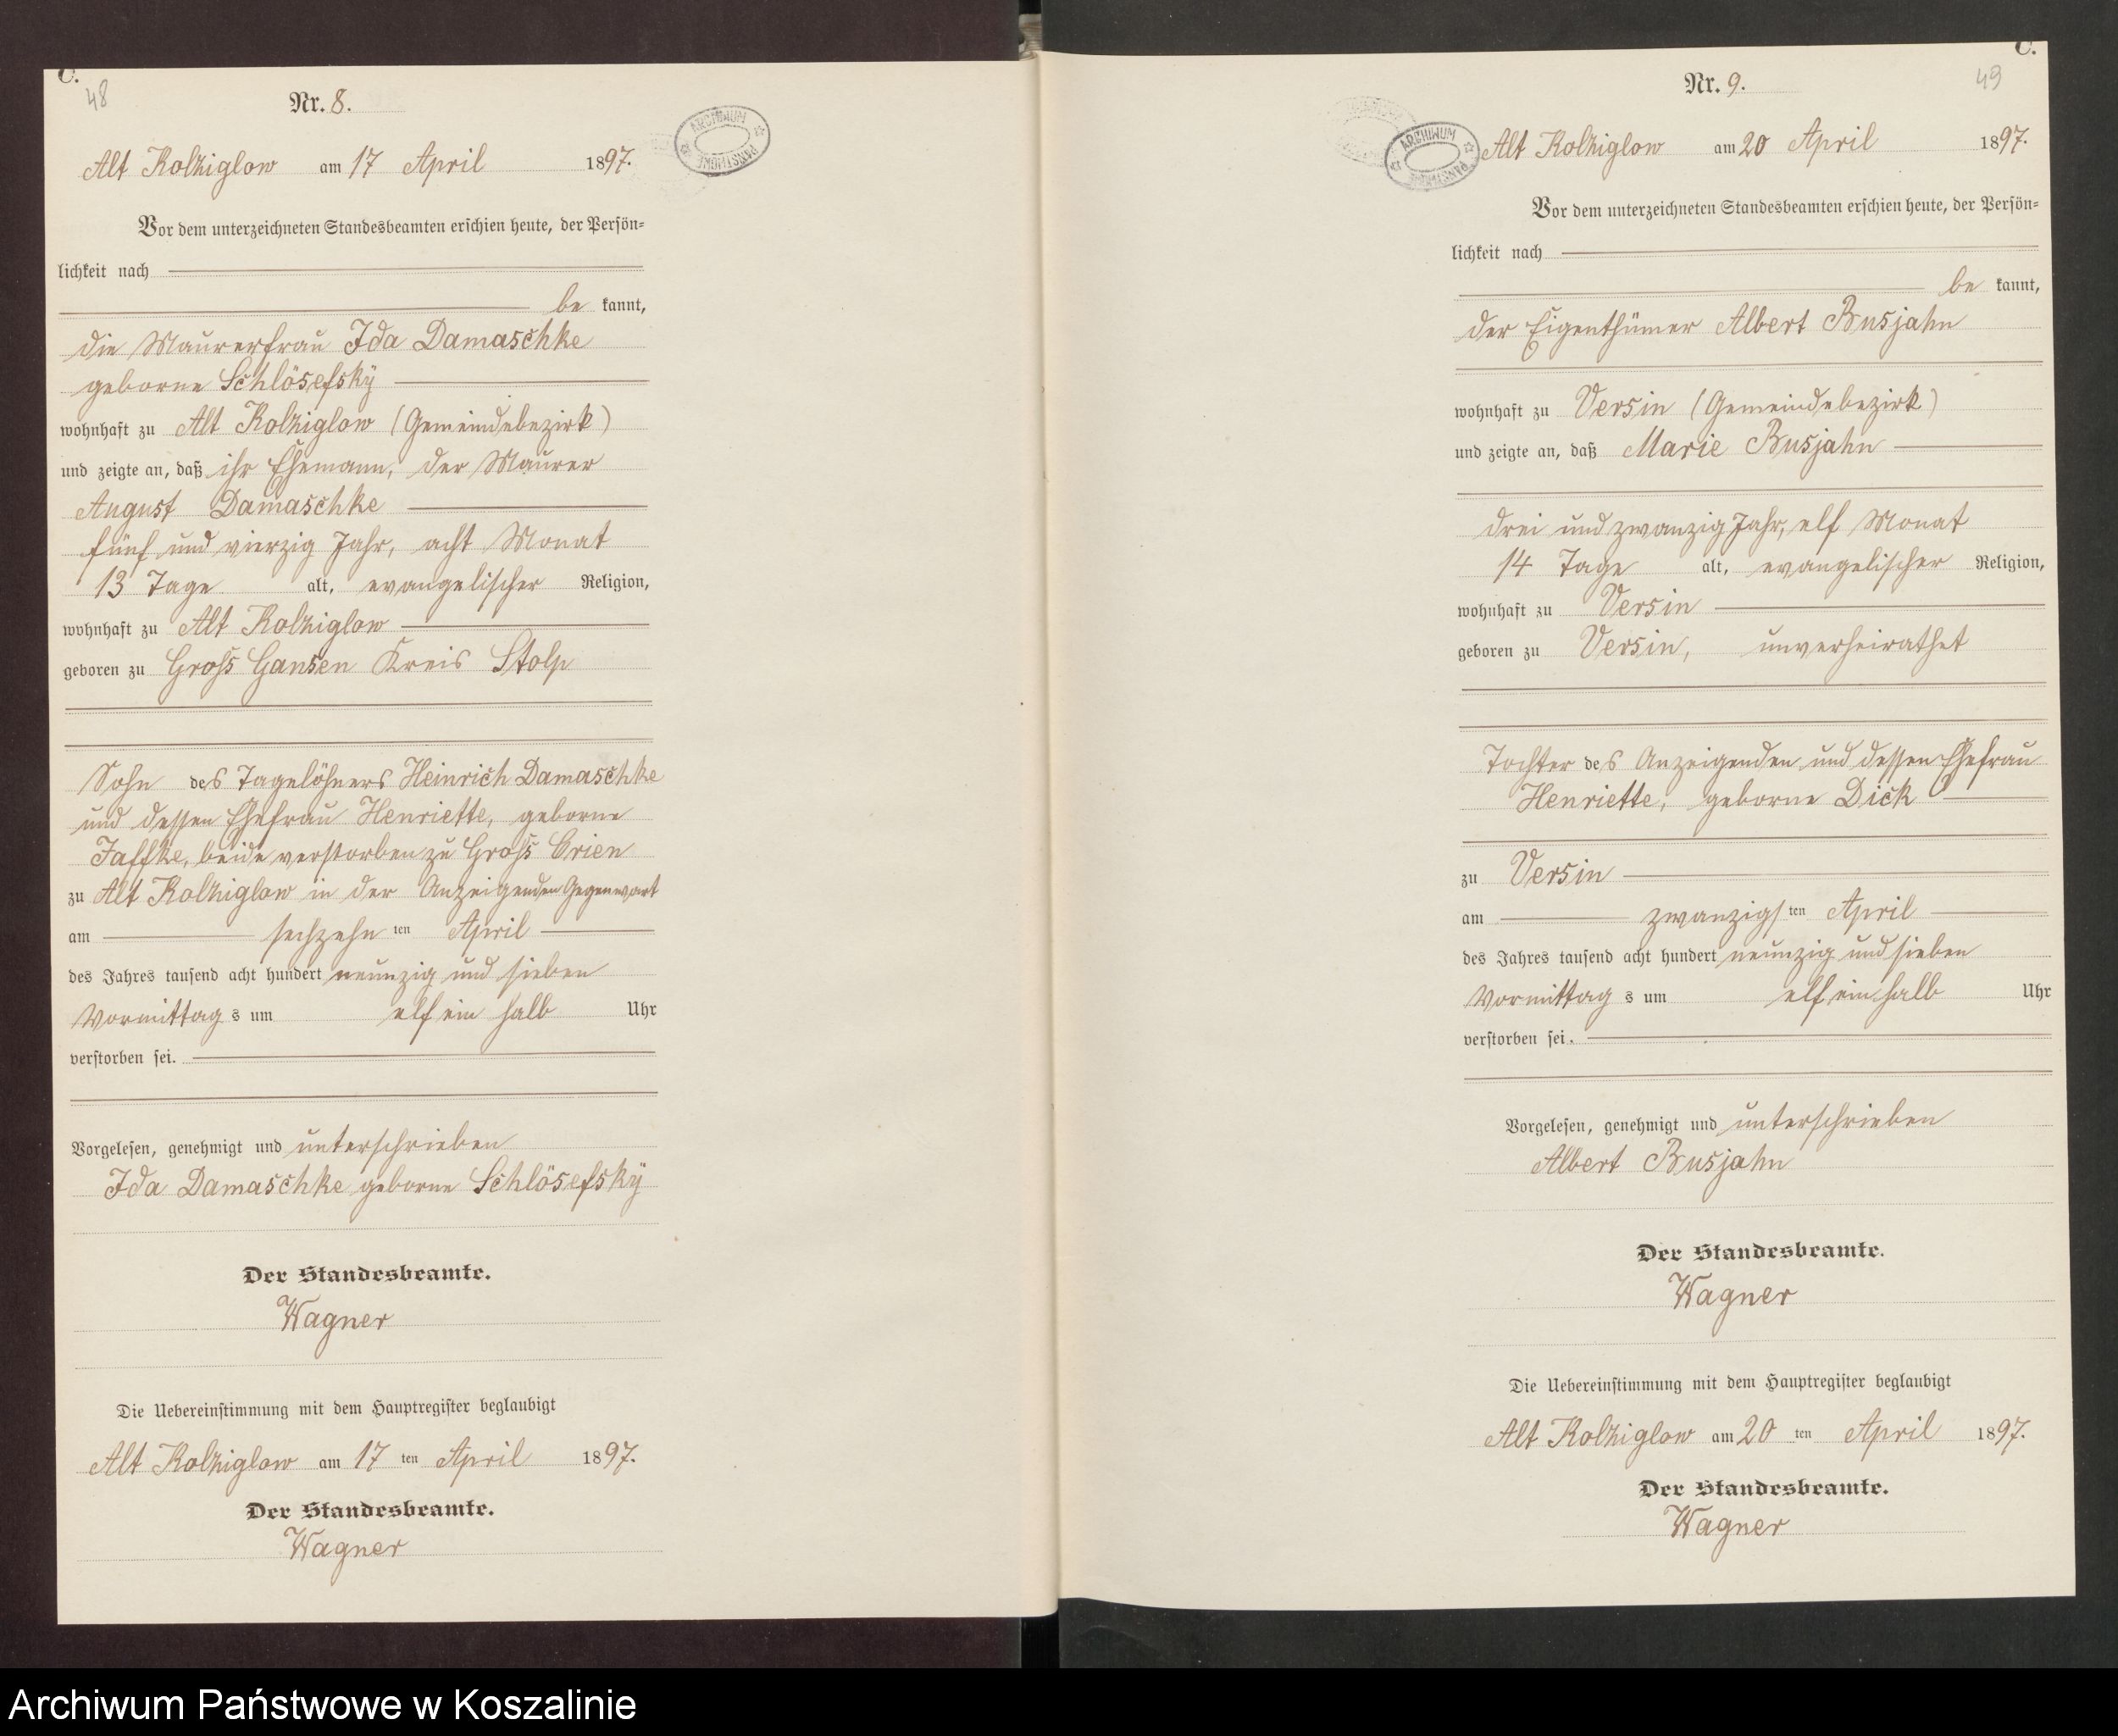 C.
48
Nr. 8.
Alt Kolziglow am 17 April 1897.
ARCHIWUM PAŃSTWOWE
Vor dem unterzeichneten Standesbeamten erschien heute, der Persön-
lichkeit nach
be kannt,
die Maurerfrau Ida Damaschke
geborne Schlösefsky
wohnhaft zu Alt Kolziglow (Gemeindebezirk)
und zeigte an, daß ihr Ehemann, der Maurer
August Damaschke
fünf und vierzig Jahr, acht Monat
13 Tage alt, evangelischer Religion,
wohnhaft zu Alt Kolziglow
geboren zu Groß Gansen Kreis Stolp
Sohn des Tagelöhners Heinrich Damaschke
und dessen Ehefrau Henriette, geborne
Jaffke, beide verstorben zu Groß Crien
zu Alt Kolziglow in der Anzeigenden Gegenwart
am sechzehn ten April
des Jahres tausend acht hundert neunzig und sieben
Vormittag s um elf ein halb Uhr
verstorben sei.
Vorgelesen, genehmigt und unterschrieben
Ida Damaschke geborne Schlösefsky
Der Standesbeamte.
Wagner
Die Uebereinstimmung mit dem Hauptregister beglaubigt
Alt Kolziglow am 17 ten April 1897.
Der Standesbeamte.
Wagner
C.
49
Nr. 9.
ARCHIWUM PAŃSTWOWE
Alt Kolziglow am 20 April 1897.
Vor dem unterzeichneten Standesbeamten erschien heute, der Persön-
lichkeit nach
be kannt,
der Eigenthümer Albert Busjahn
wohnhaft zu Versin (Gemeindebezirk)
und zeigte an, daß Marie Busjahn
drei und zwanzig Jahr, elf Monat
14 Tage alt, evangelischer Religion,
wohnhaft zu Versin
geboren zu Versin, unverheirathet
Tochter des Anzeigenden und dessen Ehefrau
Henriette, geborne Dick
zu Versin
am zwanzigs ten April
des Jahres tausend acht hundert neunzig und sieben
Vormittag s um elf ein halb Uhr
verstorben sei.
Vorgelesen, genehmigt und unterschrieben
Albert Busjahn
Der Standesbeamte.
Wagner
Die Uebereinstimmung mit dem Hauptregister beglaubigt
Alt Kolziglow am 20 ten April 1897.
Der Standesbeamte.
Wagner
Archiwum Państwowe w Koszalinie